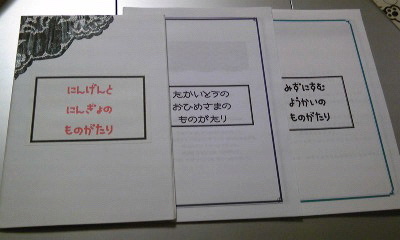 にんげんと
にんぎょの
ものがたり
たかいとうの
おひめさまの
ものがたり
みずにすむ
ようかいの
ものがたり